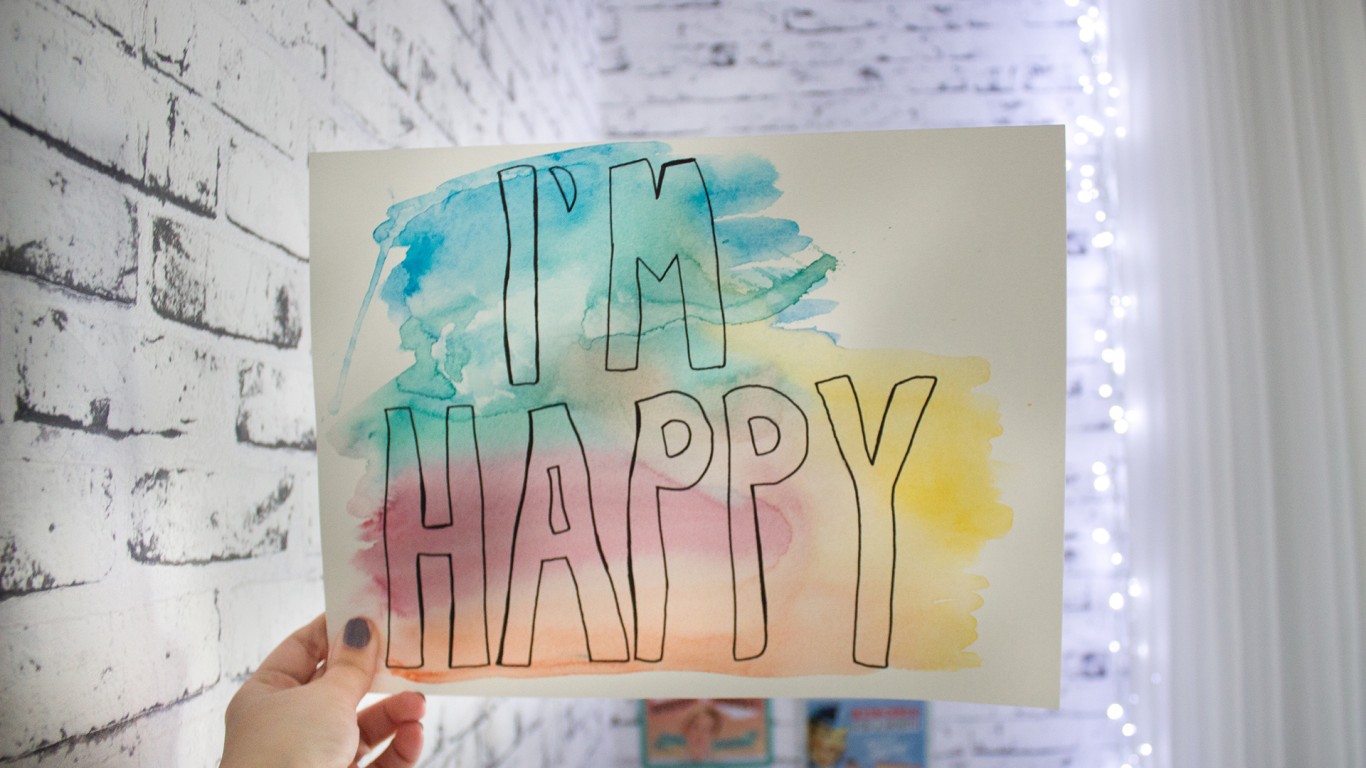 I'M
HAPPY